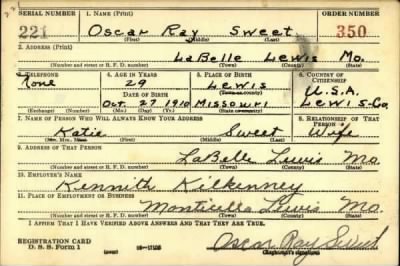 SERIAL NUMBER 1. NAME (Print) ORDER NUMBER
221 Oscar Ray Sweet 350
(First) (Middle) (Last)
2. ADDRESS (Print)
LaBelle Lewis Mo.
(Number and street or R. F. D. number) (Town) (County) (State)
3. TELEPHONE 4. AGE IN YEARS 5. PLACE OF BIRTH 6. COUNTRY OF CITIZENSHIP
None 29 Lewis
DATE OF BIRTH (Town or county) U.S.A.
Oct. 27 1910 Missouri Lewis-Co.
(Exchange) (Number) (Mo.) (Day) (Yr.) (State or country)
7. NAME OF PERSON WHO WILL ALWAYS KNOW YOUR ADDRESS 8. RELATIONSHIP OF THAT PERSON
Katie Sweet Wife
(Mr., Mrs., Miss) (First) (Middle) (Last)
9. ADDRESS OF THAT PERSON
LaBelle Lewis Mo
(Number and street or R. F. D. number) (Town) (County) (State)
10. EMPLOYER'S NAME
Kennith Kilkenney
11. PLACE OF EMPLOYMENT OR BUSINESS
Monticello Lewis Mo.
(Number and street or R. F. D. number) (Town) (County) (State)
I AFFIRM THAT I HAVE VERIFIED ABOVE ANSWERS AND THAT THEY ARE TRUE.
REGISTRATION CARD
D. S. S. Form 1 (over) Oscar Ray Sweet
(Registrant's signature)